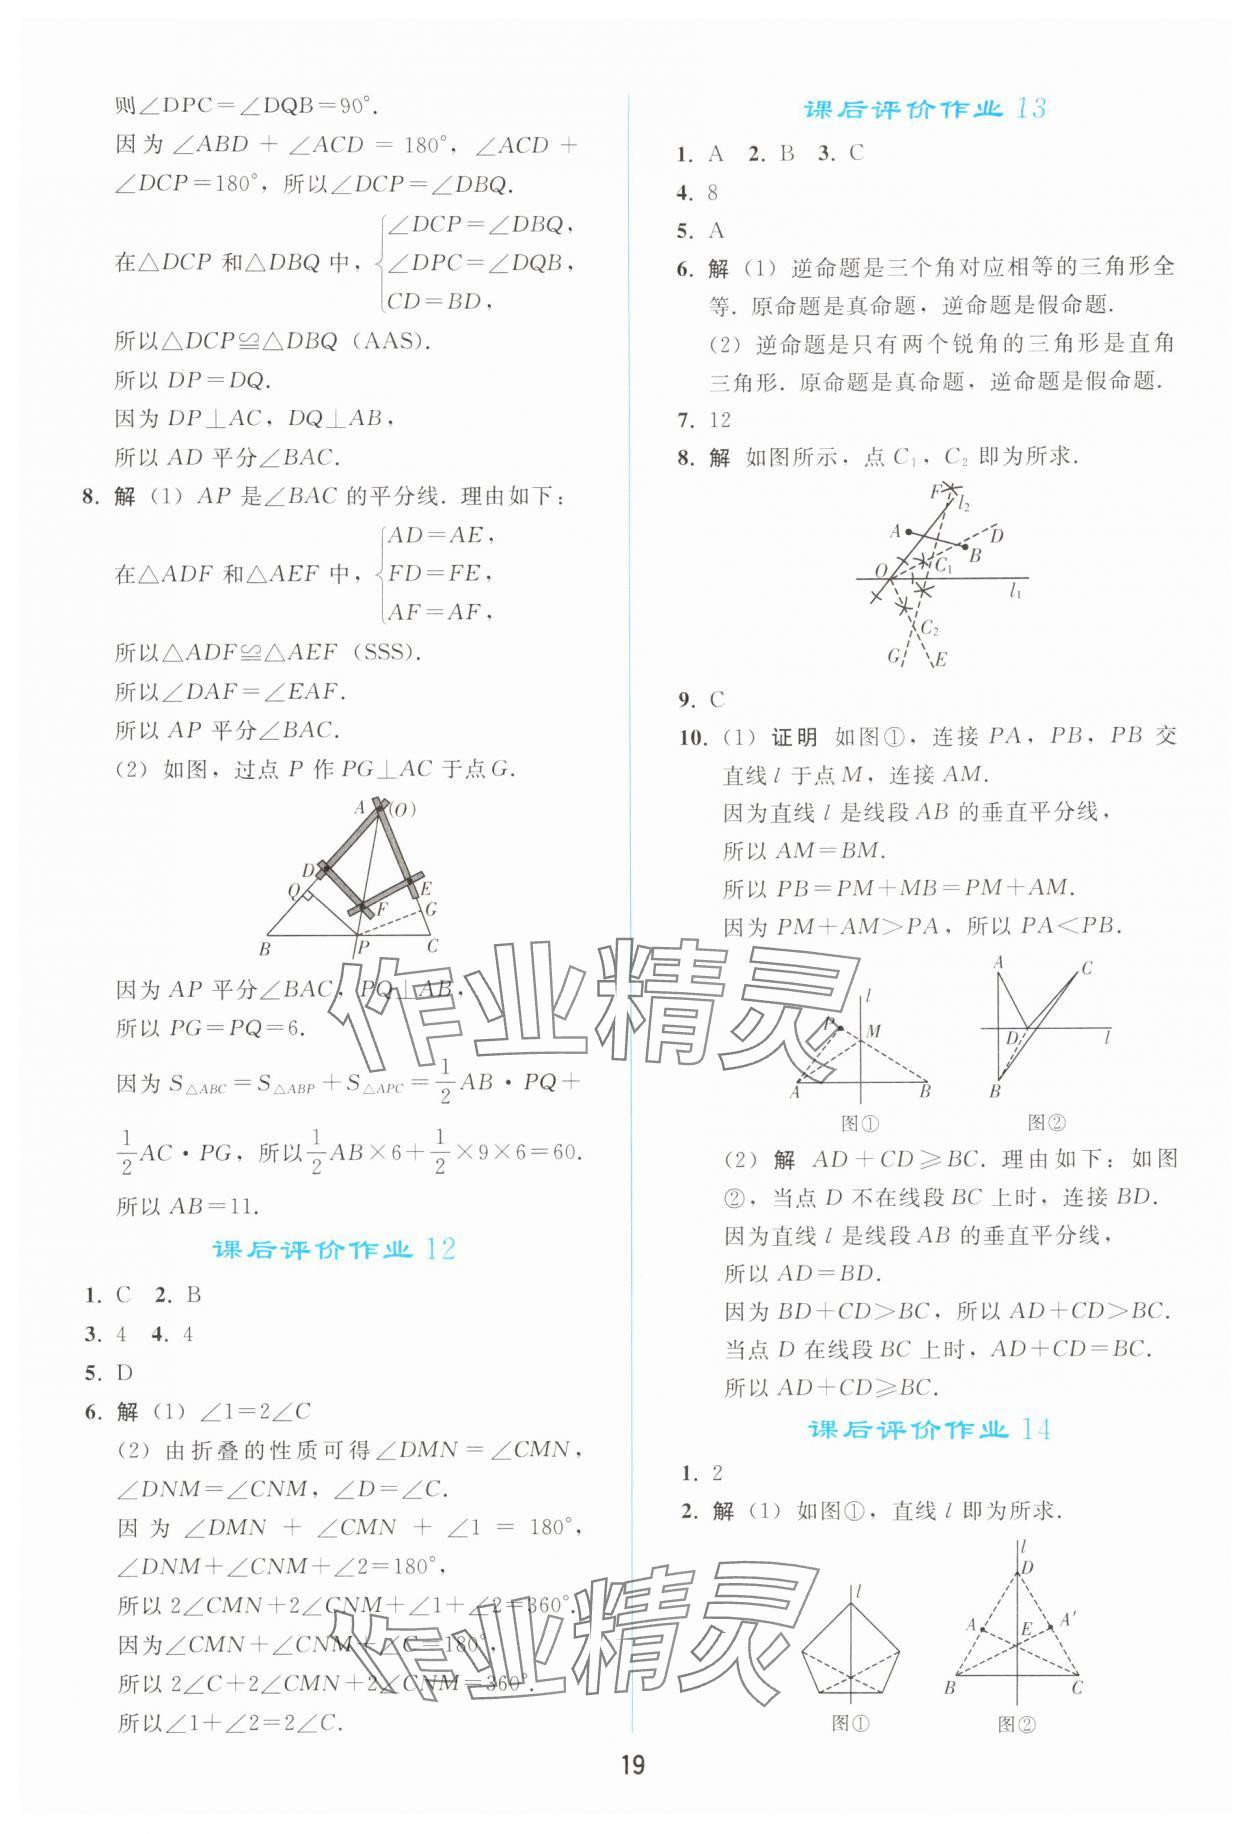 则∠DPC=∠DQB=90°.
因为 ∠ABD + ∠ACD = 180°, ∠ACD +
∠DCP=180°, 所以∠DCP=∠DBQ.
在△DCP 和△DBQ 中, { ∠DCP=∠DBQ,
∠DPC=∠DQB,
CD=BD,
所以△DCP≌△DBQ (AAS).
所以 DP=DQ.
因为 DP⊥AC, DQ⊥AB,
所以 AD 平分∠BAC.
8. 解 (1) AP 是∠BAC 的平分线. 理由如下:
在△ADF 和△AEF 中, { AD=AE,
FD=FE,
AF=AF,
所以△ADF≌△AEF (SSS).
所以∠DAF=∠EAF.
所以 AP 平分∠BAC.
(2) 如图, 过点 P 作 PG⊥AC 于点G.
A (O)
D
Q
E
F
G
B P C
因为 AP 平分∠BAC, PQ⊥AB,
所以 PG=PQ=6.
因为 S△ABC=S△ABP+S△APC=1/2 AB·PQ+
1/2 AC·PG, 所以 1/2 AB×6+1/2×9×6=60.
所以 AB=11.
课后评价作业 12
1. C 2. B
3. 4 4. 4
5. D
6. 解 (1) ∠1=2∠C
(2) 由折叠的性质可得∠DMN=∠CMN,
∠DNM=∠CNM, ∠D=∠C.
因为 ∠DMN + ∠CMN + ∠1 = 180°,
∠DNM+∠CNM+∠2=180°,
所以 2∠CMN+2∠CNM+∠1+∠2=360°.
因为∠CMN+∠CNM+∠C=180°,
所以 2∠C+2∠CMN+2∠CNM=360°.
所以∠1+∠2=2∠C.
课后评价作业 13
1. A 2. B 3. C
4. 8
5. A
6. 解 (1) 逆命题是三个角对应相等的三角形全
等. 原命题是真命题, 逆命题是假命题.
(2) 逆命题是只有两个锐角的三角形是直角
三角形. 原命题是真命题, 逆命题是假命题.
7. 12
8. 解 如图所示, 点 C₁, C₂ 即为所求.
F l₂
A D
B
O C₁
l₁
C₂
G E
9. C
10. (1) 证明 如图①, 连接 PA, PB, PB 交
直线 l 于点 M, 连接 AM.
因为直线 l 是线段 AB 的垂直平分线,
所以 AM=BM.
所以 PB=PM+MB=PM+AM.
因为 PM+AM>PA, 所以 PA<PB.
l
P M
A B
图①
A C
D l
B
图②
(2) 解 AD+CD≥BC. 理由如下: 如图
②, 当点 D 不在线段 BC 上时, 连接 BD.
因为直线 l 是线段 AB 的垂直平分线,
所以 AD=BD.
因为 BD+CD>BC, 所以 AD+CD>BC.
当点 D 在线段 BC 上时, AD+CD=BC.
所以 AD+CD≥BC.
课后评价作业 14
1. 2
2. 解 (1) 如图①, 直线 l 即为所求.
l
图①
l
D
A E A′
B C
图②
作业精灵
作业精灵
19